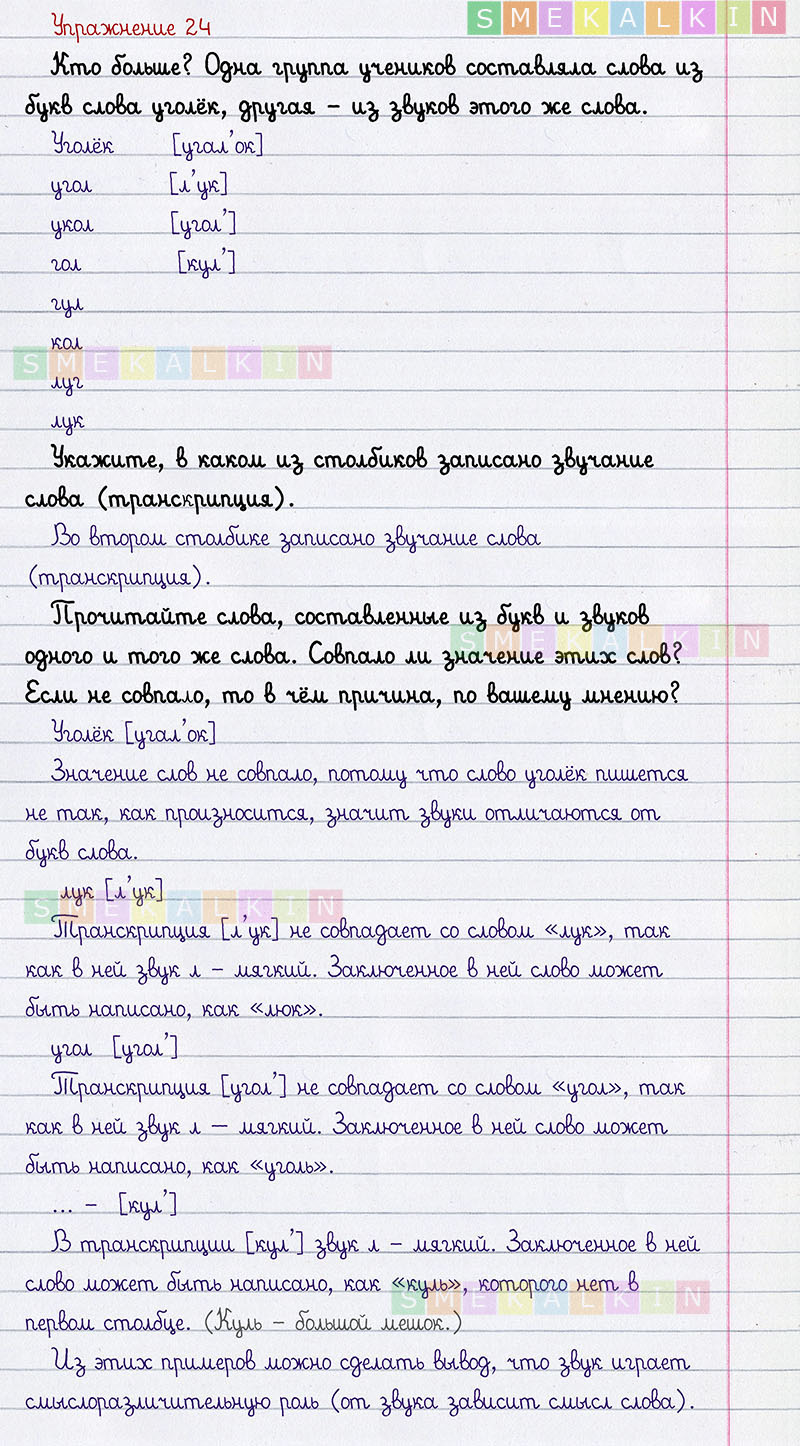 Упражнение 24 SMEKALKIN
Кто больше? Одна группа учеников составляла слова из
букв слова уголёк, другая – из звуков этого же слова.
Уголёк [угал’ок]
угол [л’ук]
укол [угол’]
гол [кул’]
гул
кол
SMEKALKIN
луг
лук
Укажите, в каком из столбиков записано звучание
слова (транскрипция).
Во втором столбике записано звучание слова
(транскрипция).
Прочитайте слова, составленные из букв и звуков
SMEKALKIN
одного и того же слова. Совпало ли значение этих слов?
Если не совпало, то в чём причина, по вашему мнению?
Уголёк [угал’ок]
Значение слов не совпало, потому что слово уголёк пишется
не так, как произносится, значит звуки отличаются от
букв слова.
лук [л’ук]
SMEKALKIN
Транскрипция [л’ук] не совпадает со словом «лук», так
как в ней звук л – мягкий. Заключенное в ней слово может
быть написано, как «люк».
угол [угол’]
Транскрипция [угол’] не совпадает со словом «угол», так
как в ней звук л — мягкий. Заключенное в ней слово может
быть написано, как «уголь».
... – [кул’]
В транскрипции [кул’] звук л – мягкий. Заключенное в ней
слово может быть написано, как «куль», которого нет в
SMEKALKIN
первом столбце. (Куль – большой мешок.)
Из этих примеров можно сделать вывод, что звук играет
смыслоразличительную роль (от звука зависит смысл слова).